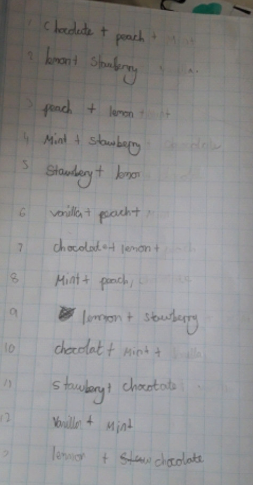 1 Chocolate + peach +
2 lemon + Stawberry
3 peach + lemon +
4 Mint + Stawberry
5 Stawbery + lemon
6 vanilla + peach +
7 chocolate + lemon +
8 Mint + peach,
9 lemmon + stawberry
10 chocolat + mint +
11 stawbery + chocotate
12 Vanilla + Mint
lemmon + chocolate